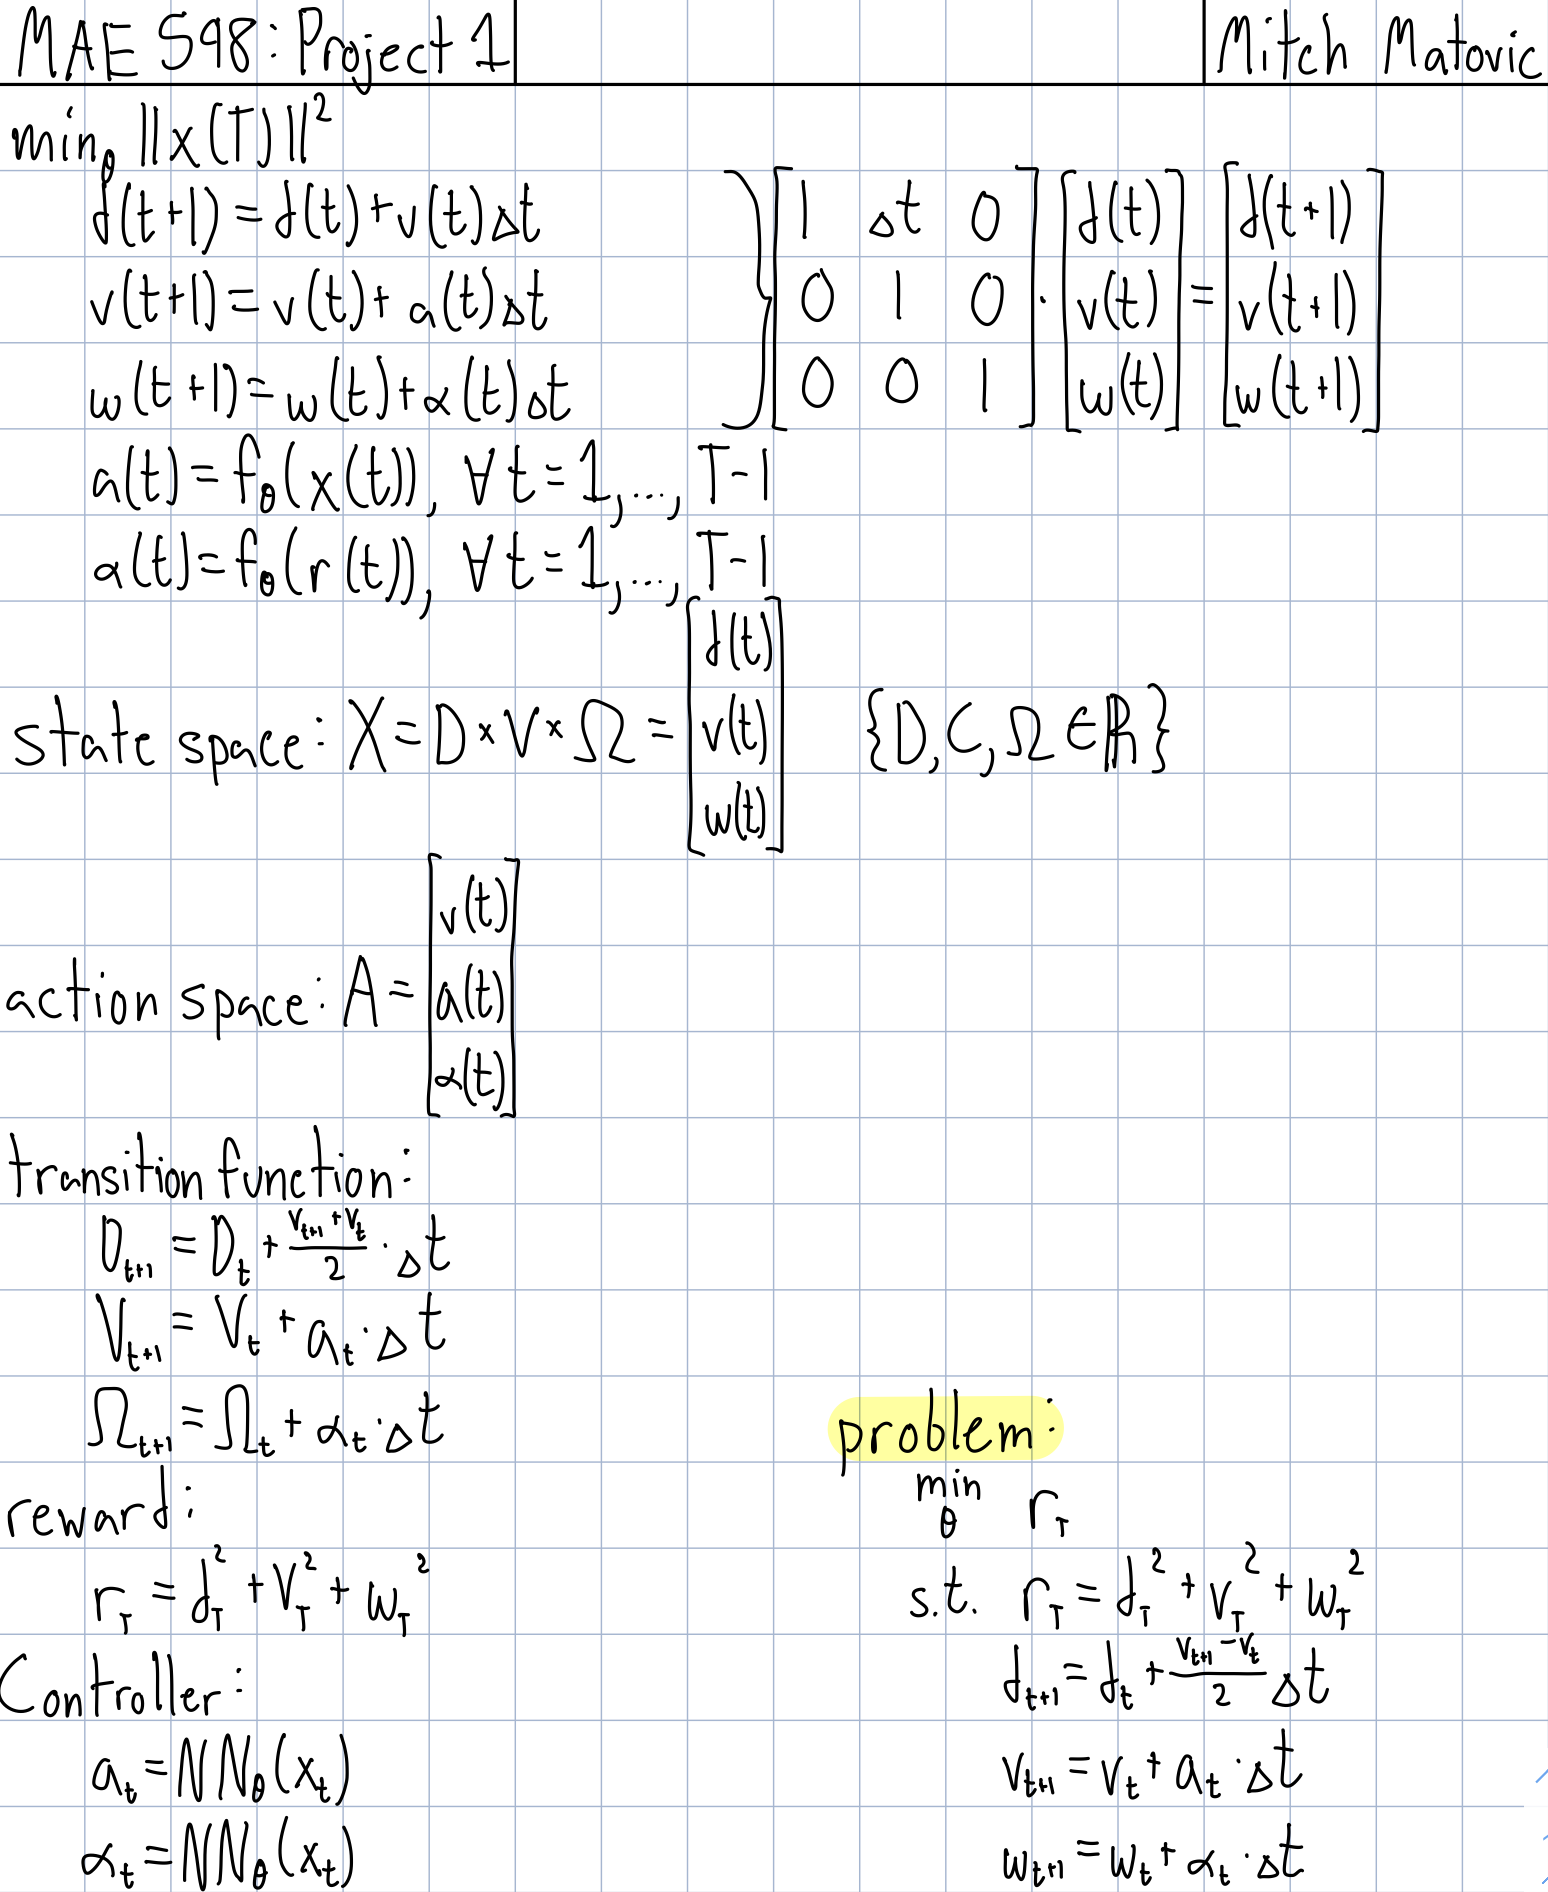 MAE 598: Project 1
Mitch Matovic
min_θ ||x(T)||²
d(t+1) = d(t) + v(t)Δt
v(t+1) = v(t) + a(t)Δt
w(t+1) = w(t) + α(t)Δt
} [1 Δt 0; 0 1 0; 0 0 1] · [d(t); v(t); w(t)] = [d(t+1); v(t+1); w(t+1)]
a(t) = f_θ(x(t)), ∀ t = 1, ..., T-1
α(t) = f_θ(r(t)), ∀ t = 1, ..., T-1
state space: X = D × V × Ω = [d(t); v(t); w(t)] {D, C, Ω ∈ ℝ}
action space: A = [v(t); a(t); α(t)]
transition function:
D_{t+1} = D_t + (V_{t+1} + V_t)/2 · Δt
V_{t+1} = V_t + a_t · Δt
Ω_{t+1} = Ω_t + α_t · Δt
reward:
r_T = d_T² + V_T² + w_T²
Controller:
a_t = NN_θ(x_t)
α_t = NN_θ(x_t)
problem:
min_θ r_T
s.t. r_T = d_T² + v_T² + w_T²
d_{t+1} = d_t + (v_{t+1} - v_t)/2 Δt
v_{t+1} = v_t + a_t · Δt
w_{t+1} = w_t + α_t · Δt